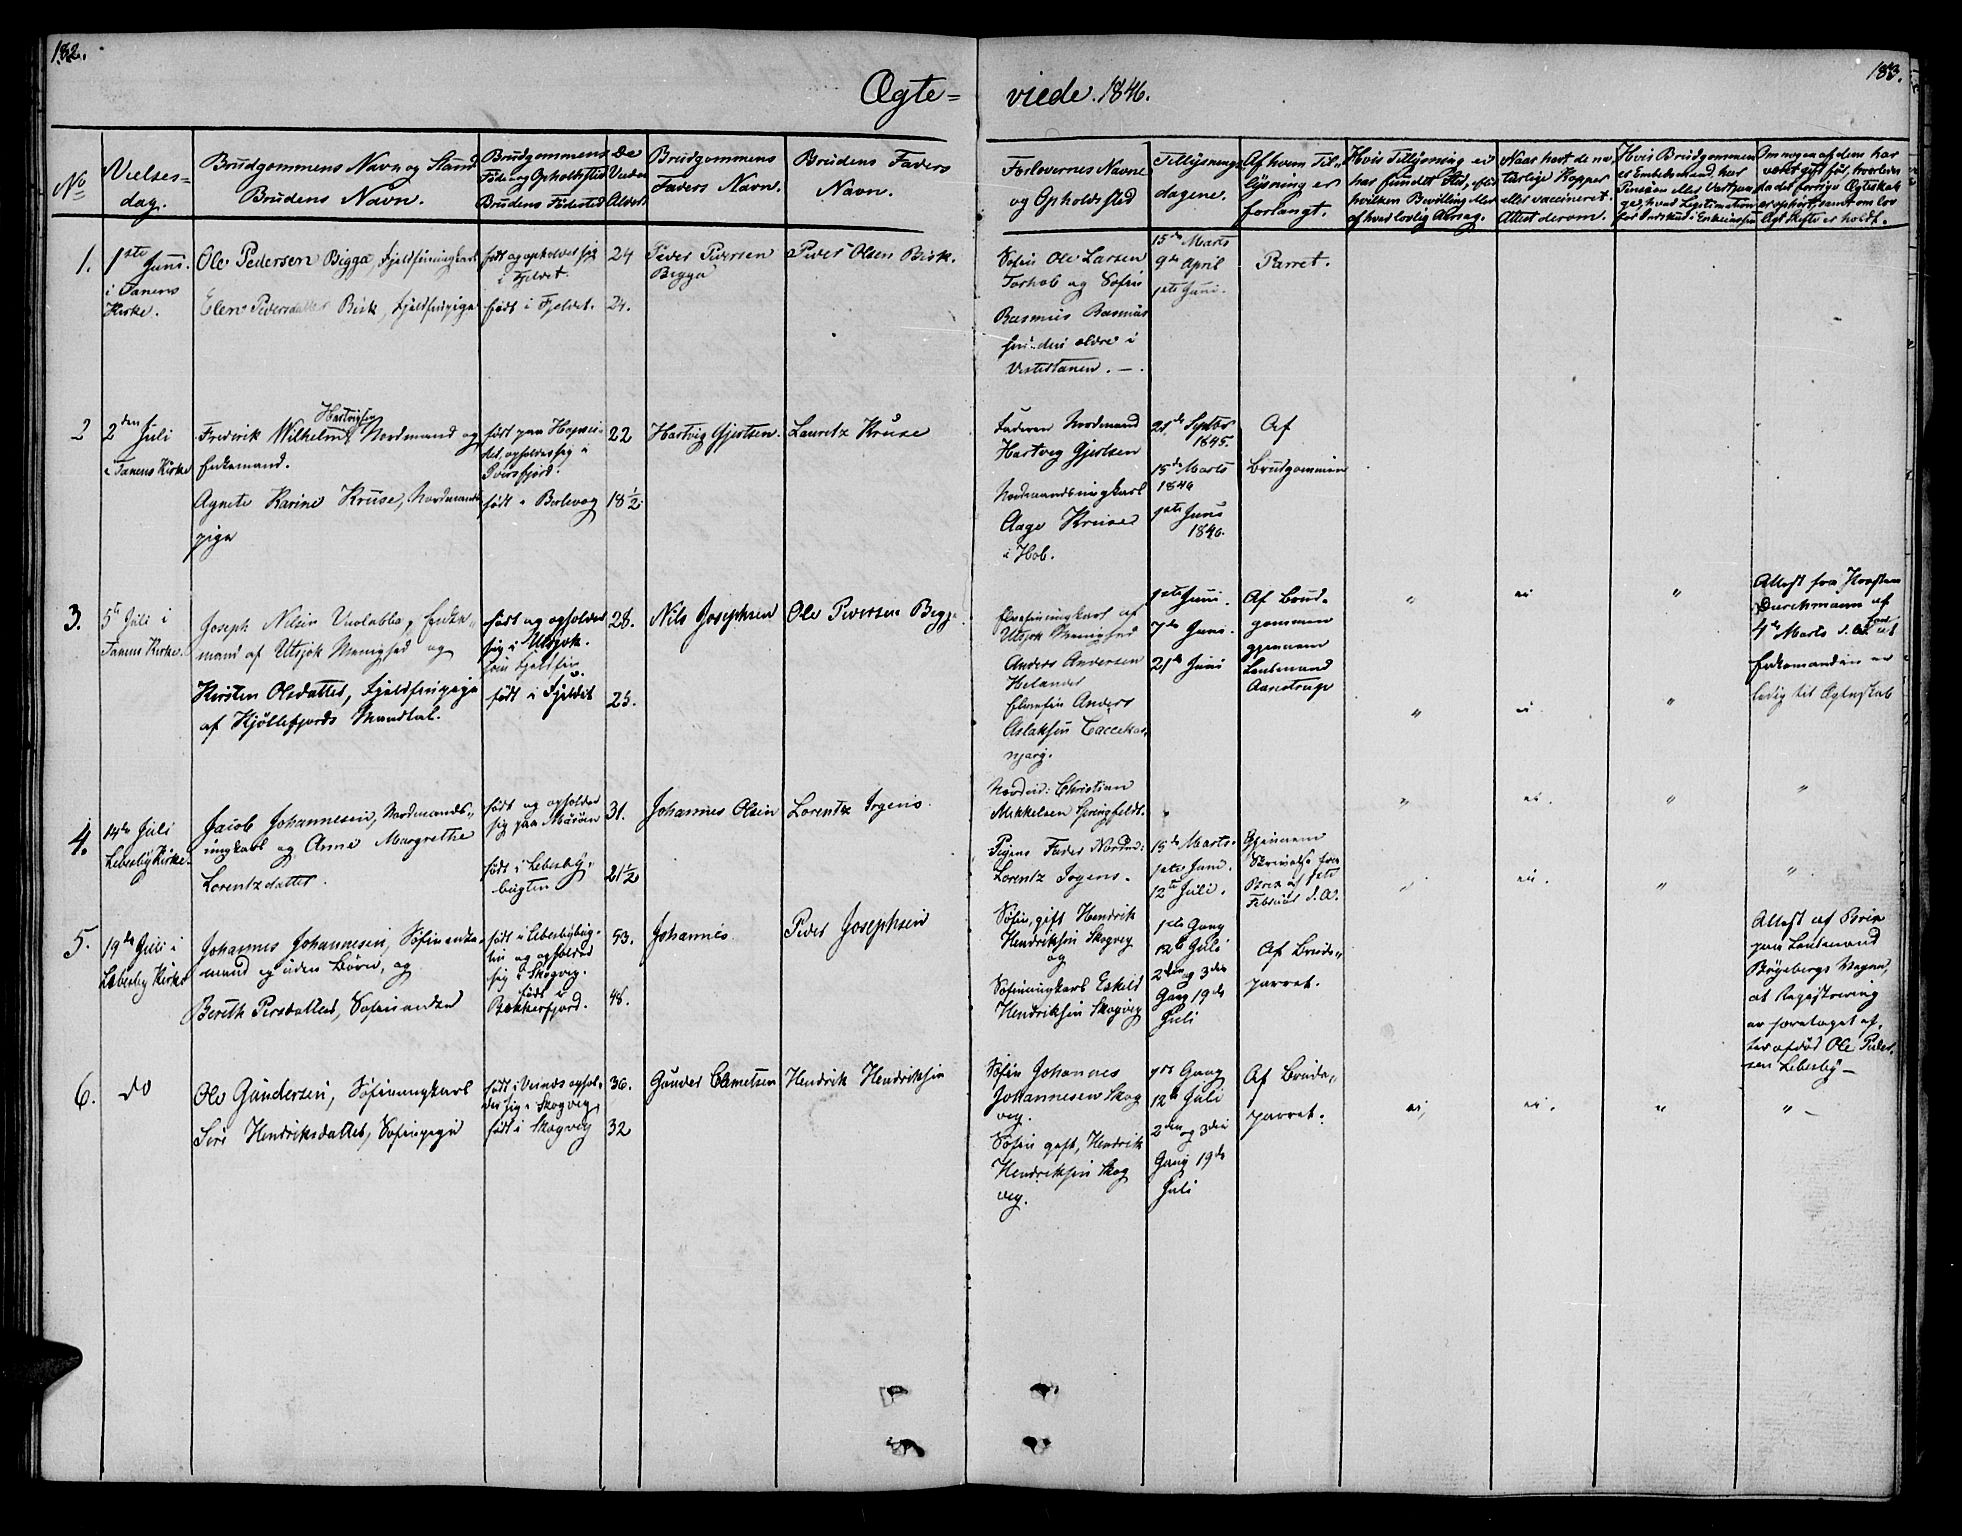 182.
183.
Ægte=
viede. 1846.
No
Vielses-
dag.
Brudgommens Navn og Stand
Brudens Navn.
Brudgommens
Føde og Opholdssted
Brudens Fødested
De
Viedes
Alder.
Brudgommens
Faders Navn.
Brudens Faders
Navn.
Forlovernes Navne
og Opholdssted
Tillysnings-
dagene.
Af hvem Til-
lysning er
forlangt.
Hvis Tillysning ei
har fundet Sted, efter
hvilken Bevilling eller
af hvad lovlig Aarsag.
Naar havt de na-
turlige Kopper
eller vaccineret.
Attest derom.
Hvis Brudgommen
er Embedsmand, har
Pension eller Vartpen-
ge, hvad Legitimation
for Indskud i Enkekassen
Om nogen af dem har
været gift før, hvorledes
da det forrige Ægteskab
er ophørt, samt om lov-
ligt Skifte er holdt.
1.
1ste Juni
i Tanens
Kirke.
Ole Pedersen Bigga, Fjeldfinungkarl
Elen Pedersdatter Bisk, Fjeldfinpige
født og opholder sig
i Fjeldet
født i Fjeldet.
24
24.
Peder Pedersen
Bigga
Peder Olsen Bisk.
Søfin Ole Larsen
Torhob og Søfin
Rasmus Rasmus
sen den ældre i
Vestertanen. —
15de Marts
9de April
1ste Juni.
Parret.
2
2den Juli
i Tanens Kirke
Hartvigsen
Frederik Wilhelm, Nordmand og
Enkemand.
Agnete Karine Kruse, Nordmands
pige
født paa Hopsei-
det, opholder sig i
født i Berlevog
22
18½
Hartvig Gjertsen.
Lauretz Kruse
Faderen Nordmand
Hartvig Gjertsen
Nordmandsungkarl
Aage Kruse
i Hob.
21de Septbr
1845.
15de Marts
1846
1ste Juni
1846.
Af
Brudgommen
3.
5te Juli i
Tanens Kirke.
Joseph Nilsen Vuolabba, Enke-
mand af Utsjok Menighed og
Kirsten Olsdatter, Fjeldfinpige
af Kjøllefjords Mandtal.
født og opholder
sig i Utsjok.
født i Fjeldet
28.
25.
Nils Josephsen
Ole Pedersen Bigga
Elvefinungkarl af
Utsjok Menighed
Anders Andersen
Helander
Elvefin Anders
Aslaksen
njarg.
1ste Juni.
7de Juni.
21de Juni
Af Brud-
gommen
gjennem
Lensmand
Aanstrup
"
ei
"
Attest fra Provsten
Durchmann af
4de Marts d. A. at
Enkemanden er
ledig til Ægteskab
"
ei.
"
4.
14de Juli
Lebesby Kirke.
Jacob Johannesen, Nordmands-
ungkarl og Anne Margrethe
Lorentzdatter.
født og opholder
sig paa Maasøen
født i Lebesby-
bugten
31.
21½
Johannes Olsen
Lorentz Irgens.
Nordmd: Christian
Mikkelsen Springfeldt.
Pigens Fader Nordm:
Lorentz Irgens.
"
15de Marts.
1ste Juni.
12te Juli.
Gjennem
Skrivelse fra
Brix af 1ste
Februar d. A.
"
ei.
"
"
"
ei.
"
"
5.
19de Juli i
Lebesby Kirke
Johannes Johannesen, Søfinenke-
mand og uden Børn, og
Bereth Persdatter, Søfinenke
født i Lebesbybug-
ten og opholder
sig i Skogvig.
født i
Bekkerfjord.
53.
48.
Johannes.
Peder Josephsen
Søfin, gift Hendrik
Hendriksen Skogvig
og
Søfinungkarl Eskild
Hendriksen Skogvig
1ste Gang
12te Juli
2den og 3die
Gang 19de
Juli
Af Brude-
parret.
Attest af Brix
paa Lensmand
Bøgebergs Vegne,
at Registrering
er foretaget ef-
ter afdød Ole Peder-
sen Lebesby —
6.
do
Ole Gundersen, Søfinungkarl
Siri Hendriksdatter, Søfinpige
født i Vesnæs ophol-
der sig i Skogvig,
født i Skogvig
36.
32
Gunder Clemetsen
Hendrik Hendriksen
Søfin Johannes
Johannesen Skog
vig.
Søfin gift, Hendrik
Hendriksen Skog
vig.
1ste Gang
12te Juli
2den og 3die
Gang 19de
Juli
Af Brude-
parret.
ei,
ei.
"
" —